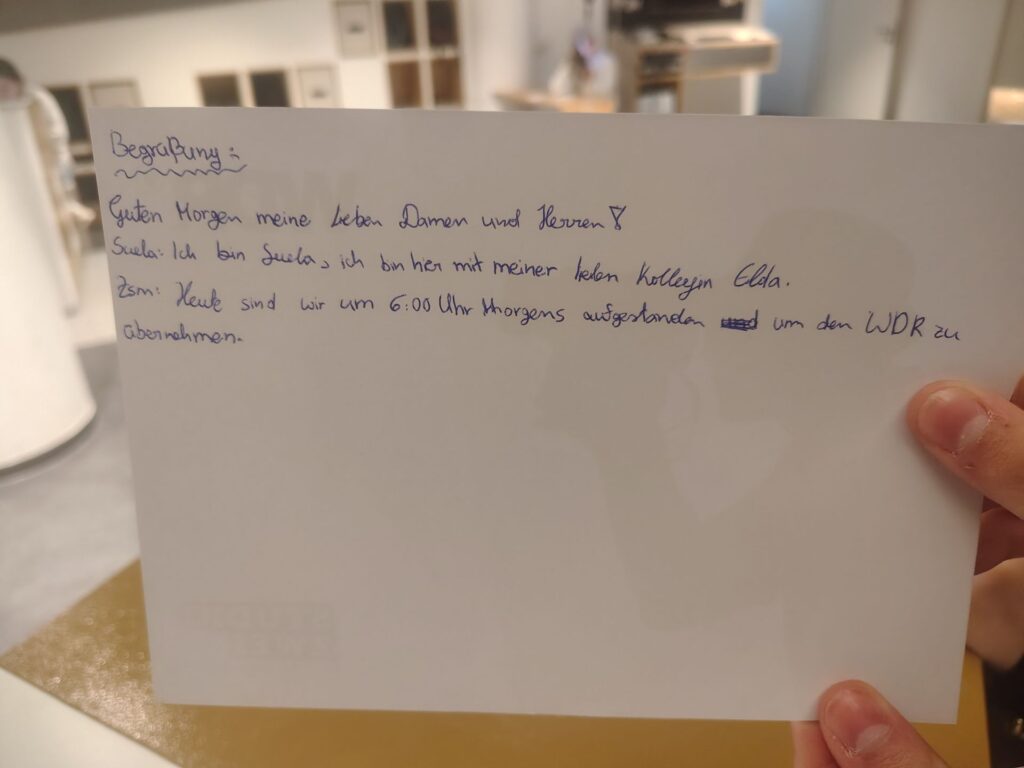 Begrüßung:
Guten Morgen meine lieben Damen und Herren!
Suela: Ich bin Suela, ich bin hier mit meiner lieben Kollegin Elda.
Zsm: Heute sind wir um 6:00 Uhr Morgens aufgestanden um den WDR zu
übernehmen.